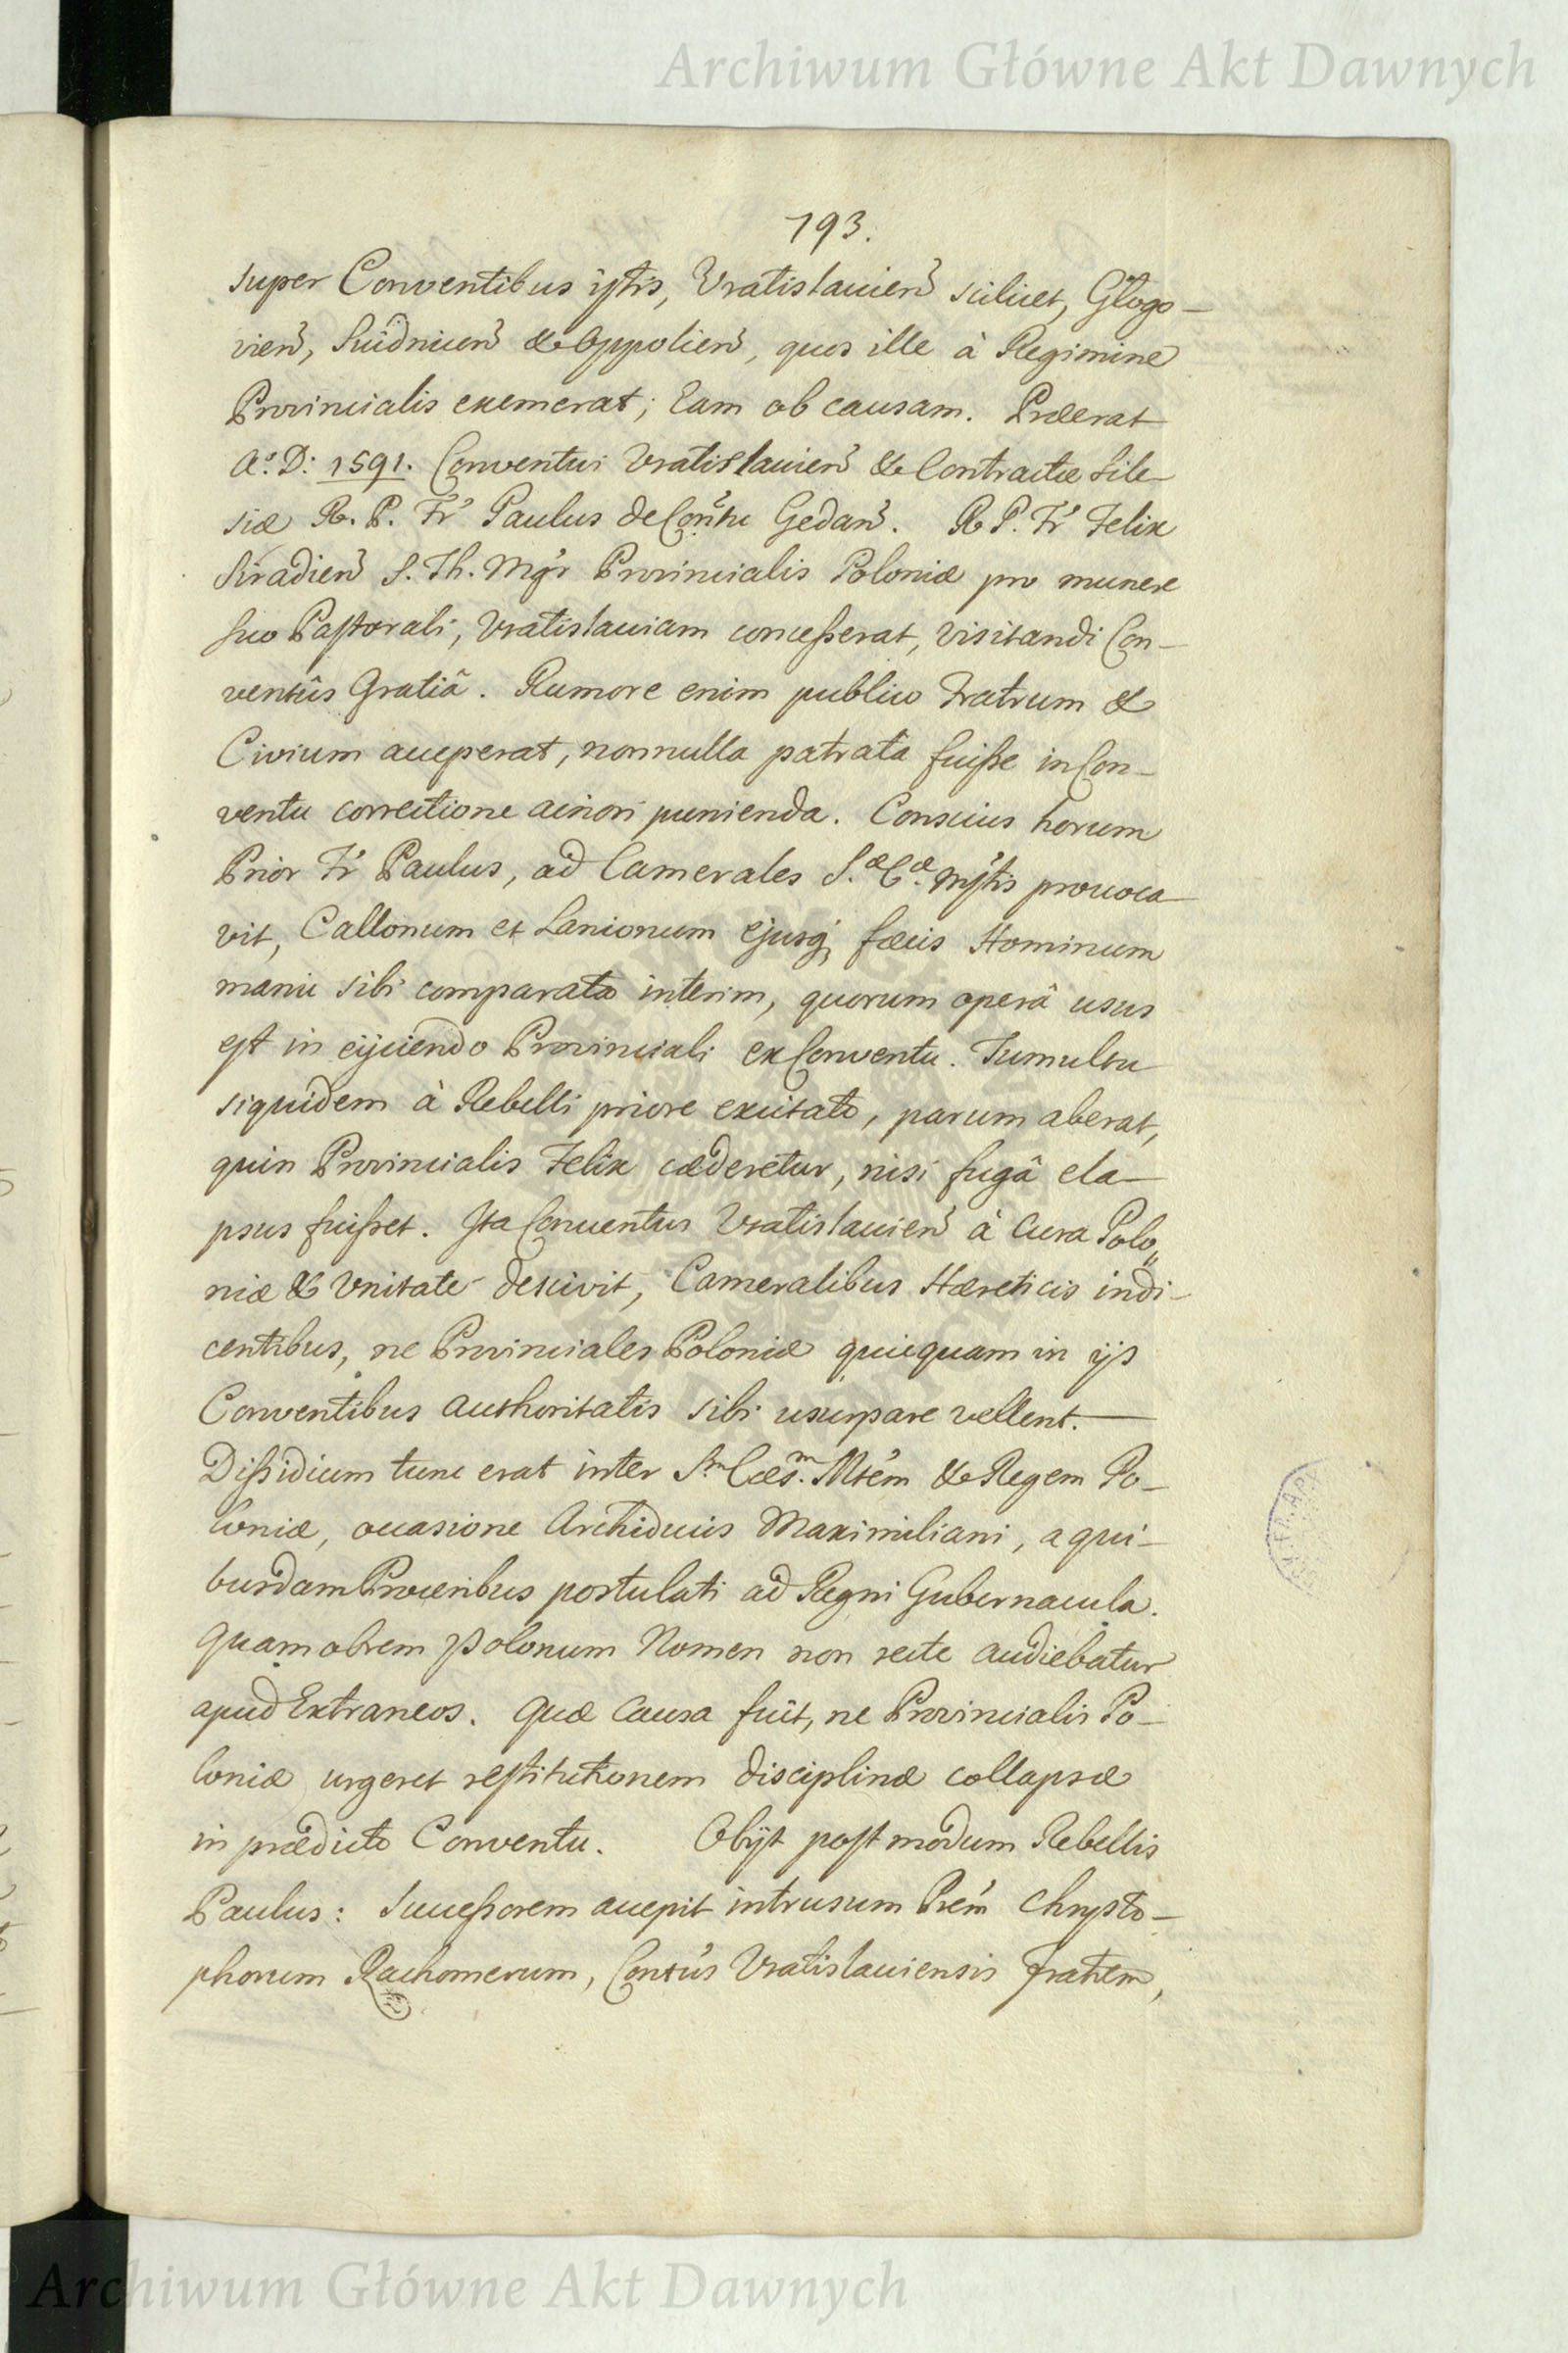 Archiwum Główne Akt Dawnych
193.
super Conventibus istis, Vratislauien̄ scilicet, Glogo-
vien̄, Suidnicen̄ & Oppolien̄, quos ille à Regimine
Provincialis exemerat; Eam ob causam. Præerat
Aº. D: 1591. Conventui Vratislauien̄ & Contractæ Sile-
siæ R. P. Fr̄ Paulus de Con̄tu Gedan̄. R P. Fr̄ Felix
Siradien̄ S. Th. Mgr̄ Provincialis Poloniæ pro munere
suo Pastorali, Vratislauiam concesserat, visitandi Con-
ventûs Gratiâ. Rumore enim publico Fratrum &
Civium acceperat, nonnulla patrata fuisse in Con-
ventu correctione acriori punienda. Conscius horum
Prior Fr̄ Paulus, ad Camerales S.æ C.æ Mṯis prouoca-
vit, Callonum et Lanionum ejusq́; fæcis Hominum
manu sibi comparata interim, quorum operâ usus
est in eijciendo Provinciali ex Conventu. Tumultu
siquidem à Rebelli priore excitato, parum aberat,
quin Provincialis Felix cæderetur, nisi fugâ ela-
psus fuisset. Ita Conuentus Vratislauien̄ à Cura Polo„
niæ & Vnitate descivit, Cameralibus Hæreticis indi-
centibus, ne Provinciales Poloniæ quicquam in ijs
Conventibus authoritatis sibi usurpare vellent.—
Dissidium tunc erat inter S.m Cæs.m Mtēm & Regem Po-
loniæ, occasione Archiducis Maximiliani, a qui-
busdam Proceribus postulati ad Regni Gubernacula.
Quamobrem Polonum Nomen non recte audiebatur
apud Extraneos. Quæ Causa fuit, ne Provincialis Po-
loniæ urgeret restitutionem disciplinæ collapsæ
in prædicto Conventu. Obijt postmodum Rebellis
Paulus: Successorem accepit intrusum Prēm Chrysto-
phorum Rachomerum, Contūs Vratislauiensis fratrem,
Archiwum Główne Akt Dawnych